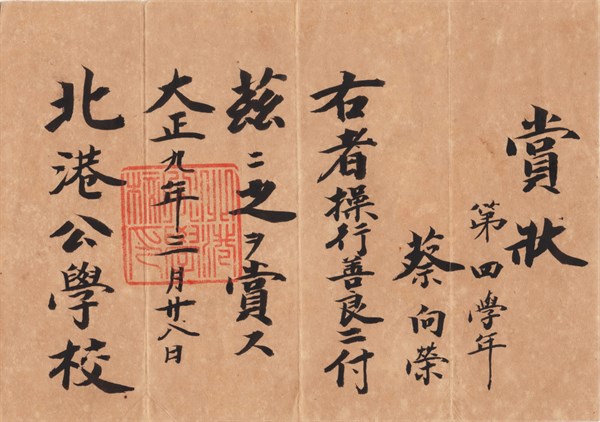 賞狀
第四學年
蔡向榮
右者操行善良ニ付
茲ニ之ヲ賞ス
大正九年三月廿八日
北港公學校